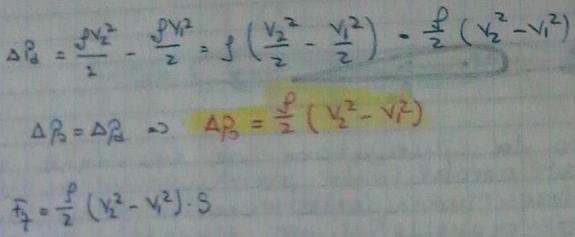 ΔP_d = ρv₂²/2 - ρv₁²/2 = ρ (v₂²/2 - v₁²/2) = ρ/2 (v₂² - v₁²)
Δp_s = Δp_d ⇒ Δp_s = ρ/2 (v₂² - v₁²)
F_z = ρ/2 (v₂² - v₁²) · S